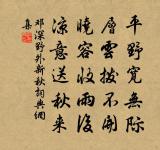 平野寬無際
層雲撥不開
曉容收雨後
涼意送秋来
鄧深野外新秋詞典網
集